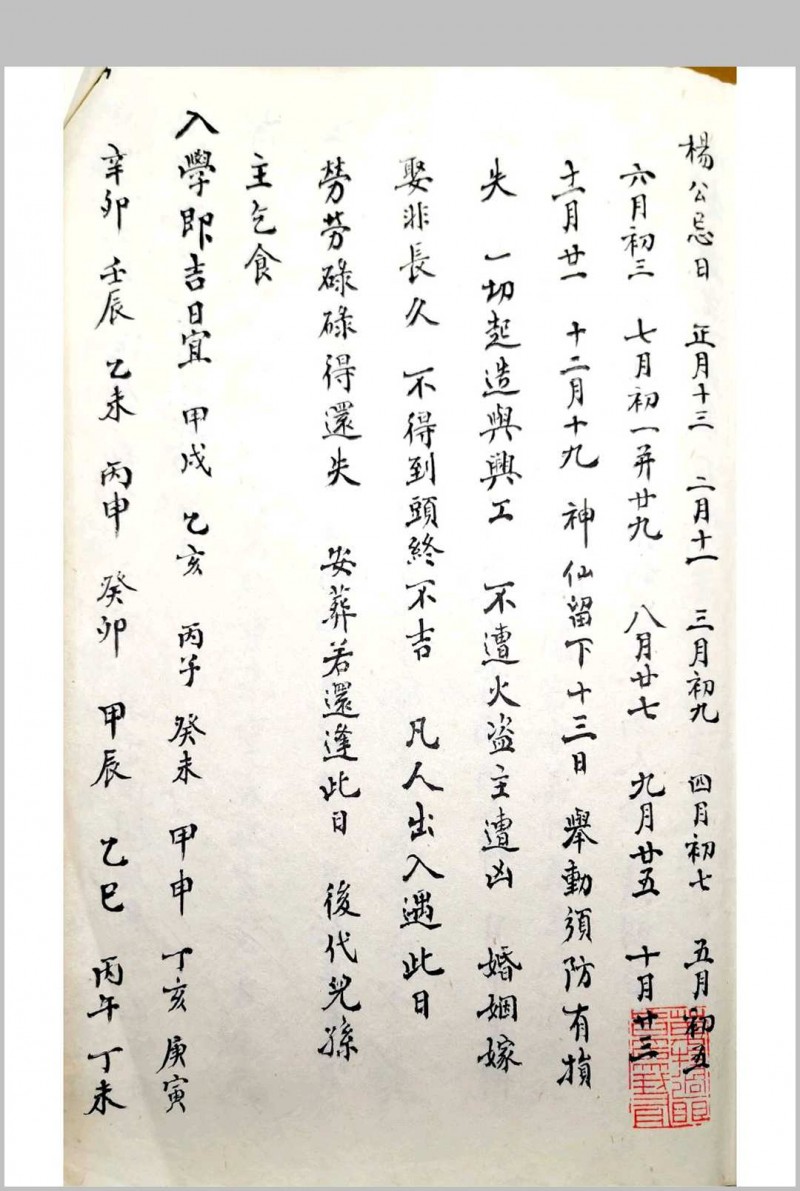 楊公忌日 正月十三 二月十一 三月初九 四月初七 五月初五
六月初三 七月初一并廿九 八月廿七 九月廿五 十月廿三
十一月廿一 十二月十九 神仙留下十三日 舉動須防有損
失 一切起造與興工 不遭火盗主遭凶 婚姻嫁
娶非長久 不得到頭終不吉 凡人出入遇此日
勞劳碌碌得還失 安葬若還逢此日 後代兒孫
主乞食
入學即吉日宜 甲戌 乙亥 丙子 癸未 甲申 丁亥 庚寅
辛卯 壬辰 乙未 丙申 癸卯 甲辰 乙巳 丙午 丁未